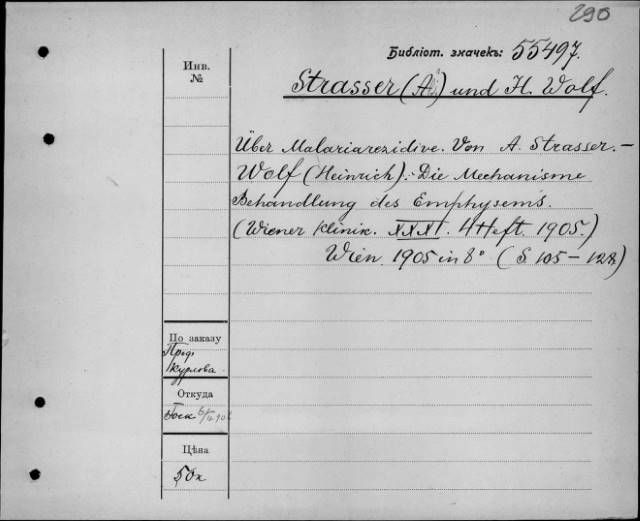 290
Библіот. значекъ: 55497.
Инв.
№
Strasser (A.) und H. Wolf.
Über Malariarezidive. Von A. Strasser. –
Wolf (Heinrich). Die Mechanisme
Behandlung des Emphysems.
(Wiener Klinik. XXXI. 4 Heft. 1905.)
Wien. 1905 in 8° (S. 105–128)
По заказу
Проф.
Курлова
Откуда
Цѣна
50к